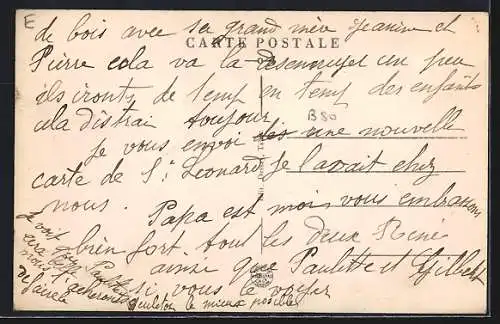 E
de bois avec sa grand mère Jeanine et
CARTE POSTALE
Pierre cela va la desennuyer un peu
ils iront de temp en temp des enfants
cela distrai toujour
B80
je vous envoi une nouvelle
carte de St Leonard je l'avait chez
nous. Papa est moi vous embrassons
bien fort. tout les deux René
ainsi que Paulette et Gilbert
si vous le voyer
le mieux possible